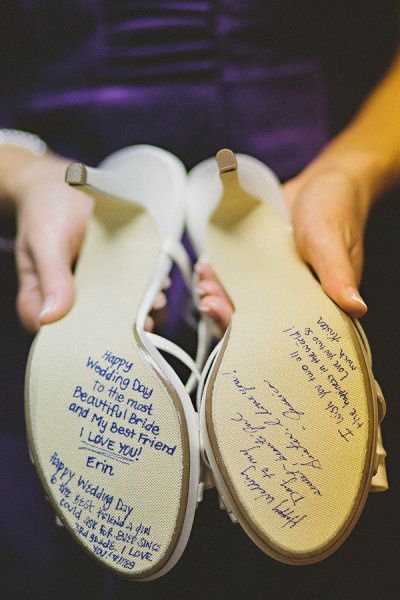 Happy
Wedding Day
To the most
Beautiful Bride
and My Best Friend
I LOVE YOU!
Erin
Happy Wedding Day
to the BEST FRIEND a girl
could ask for EVER SINCE
3rd grade. I LOVE
YOU!
I wish you two all
the happiness in the world!
Love you two so
much. Kristen
Happy Wedding Day
to my
sweet
I love you!